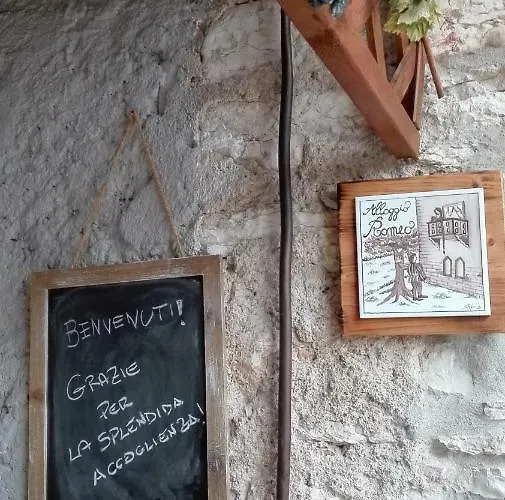 BENVENUTI!
GRAZIE
PER
LA SPLENDIDA
ACCOGLIENZA!
Alloggio
Romeo